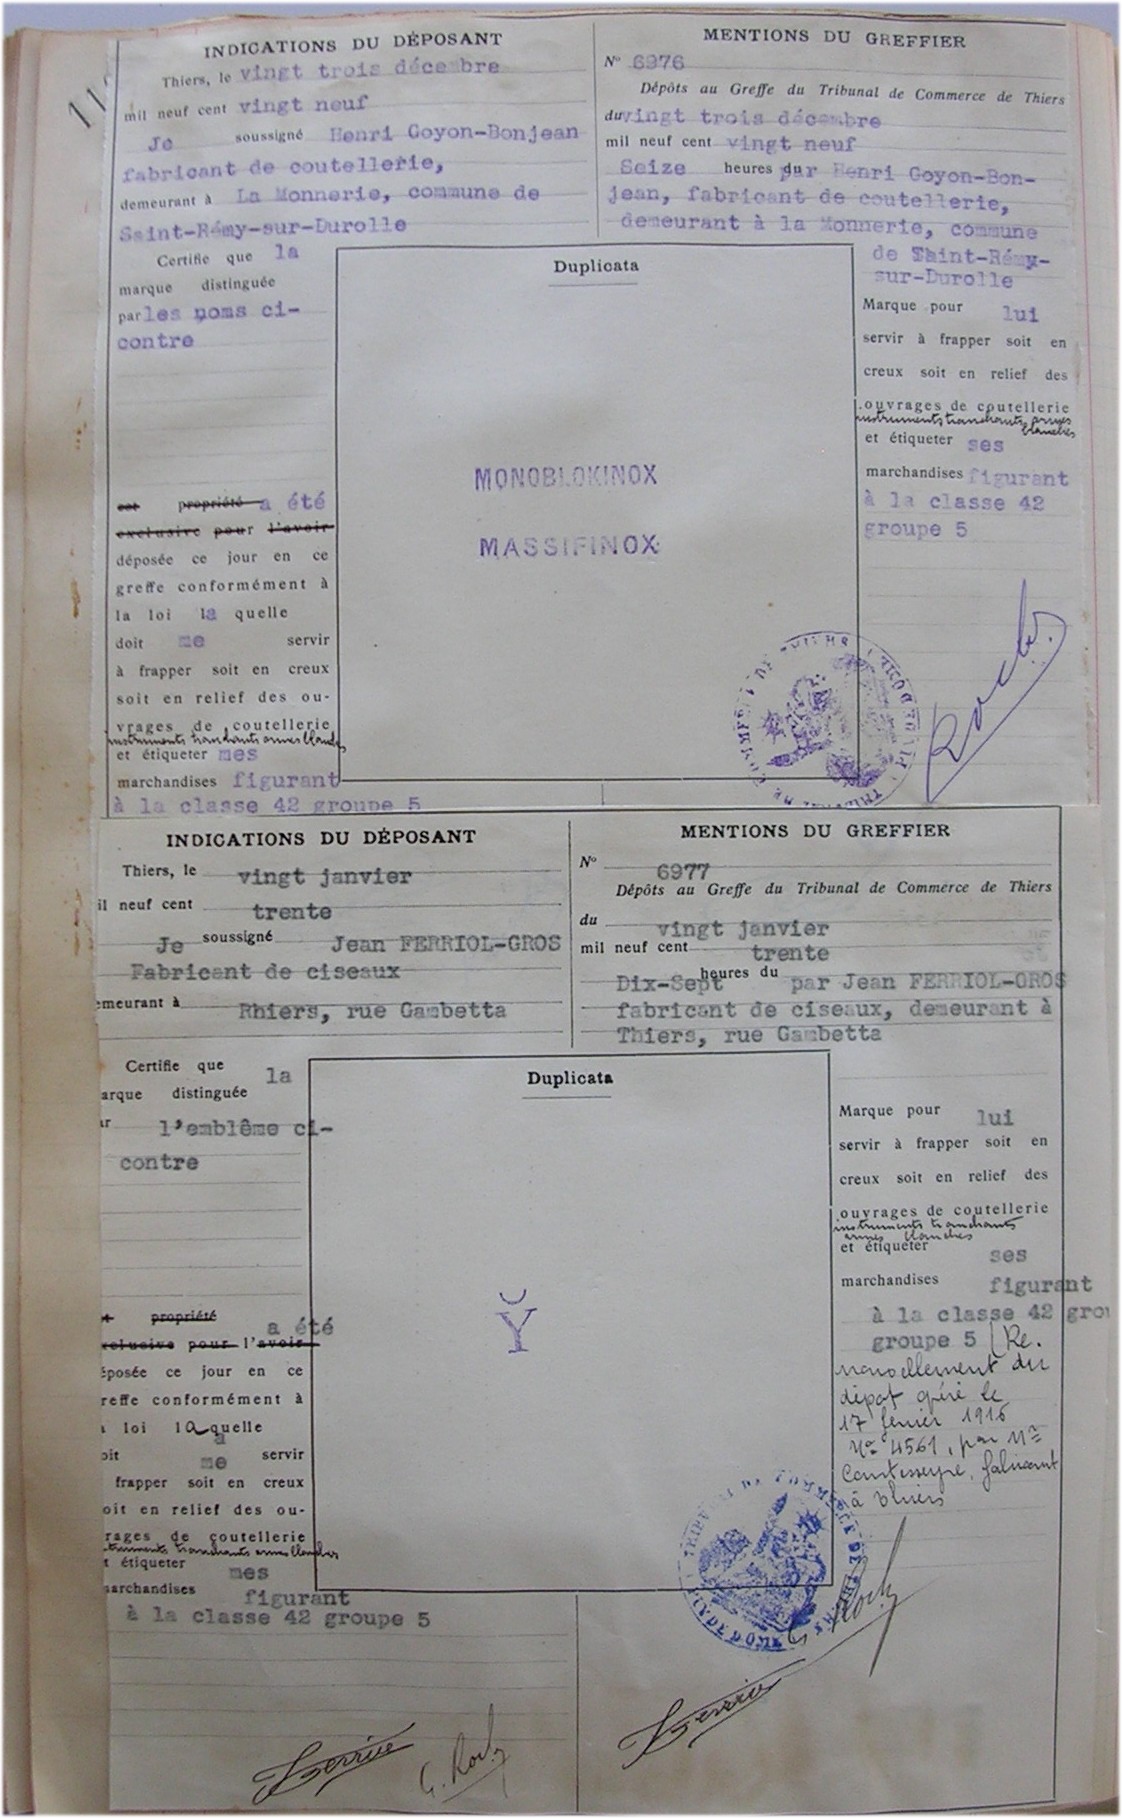 INDICATIONS DU DÉPOSANT
Thiers, le vingt trois décembre
mil neuf cent vingt neuf
Je soussigné Henri Goyon-Bonjean
fabricant de coutellerie,
demeurant à La Monnerie, commune de
Saint-Rémy-sur-Durolle
Certifie que la
marque distinguée
par les noms ci-
contre
est propriété a été
exclusive pour l'avoir
déposée ce jour en ce
greffe conformément à
la loi la quelle
doit me servir
à frapper soit en creux
soit en relief des ou-
vrages de coutellerie
instruments tranchants armes blanches
et étiqueter mes
marchandises figurant
à la classe 42 groupe 5
MENTIONS DU GREFFIER
N° 6976
Dépôts au Greffe du Tribunal de Commerce de Thiers
du vingt trois décembre
mil neuf cent vingt neuf
Seize heures du par Henri Goyon-Bon-
jean, fabricant de coutellerie,
demeurant à la Monnerie, commune
de Saint-Rémy-
sur-Durolle
Marque pour lui
servir à frapper soit en
creux soit en relief des
ouvrages de coutellerie
instruments tranchants, armes
blanches
et étiqueter ses
marchandises figurant
à la classe 42
groupe 5
Duplicata
MONOBLOKINOX
MASSIFINOX
Roch
INDICATIONS DU DÉPOSANT
Thiers, le vingt janvier
il neuf cent trente
Je soussigné Jean FERRIOL-GROS
Fabricant de ciseaux
emeurant à Rhiers, rue Gambetta
Certifie que la
arque distinguée
ar l'emblême ci-
contre
t propriété a été
xclusive pour l'avoir
éposée ce jour en ce
reffe conformément à
a loi laquelle
oit me servir
frapper soit en creux
oit en relief des ou-
rages de coutellerie
instruments tranchants armes blanches
t étiqueter mes
archandises figurant
à la classe 42 groupe 5
MENTIONS DU GREFFIER
N° 6977
Dépôts au Greffe du Tribunal de Commerce de Thiers
du vingt janvier
mil neuf cent trente
Dix-Sept heures du par Jean FERRIOL-GROS
fabricant de ciseaux, demeurant à
Thiers, rue Gambetta
Marque pour lui
servir à frapper soit en
creux soit en relief des
ouvrages de coutellerie
instruments tranchants
armes blanches
et étiqueter ses
marchandises figurant
à la classe 42 grou
groupe 5 (Re.
nouvellement du
dépot opéré le
17 fevrier 1916
No 4561, par Mr
fabricant
à Thiers
Duplicata
Y
TRIBUNAL DE COMMERCE DE THIERS
G. Roch
G. Roch